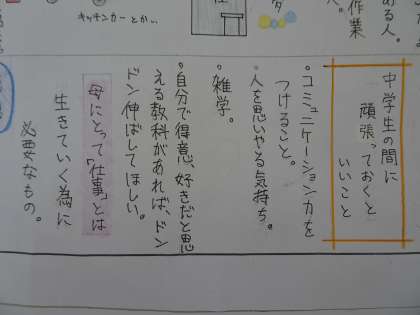 ある人。
作業
キッチンカーとか…
中学生の間に
頑張っておくと
いいこと
・コミュニケーション力を
つけること。
・人を思いやる気持ち。
・雑学。
・自分で得意、好きだと思
える教科があれば、ドン
ドン伸ばしてほしい。
母にとって「仕事」とは
生きていく為に
必要なもの。